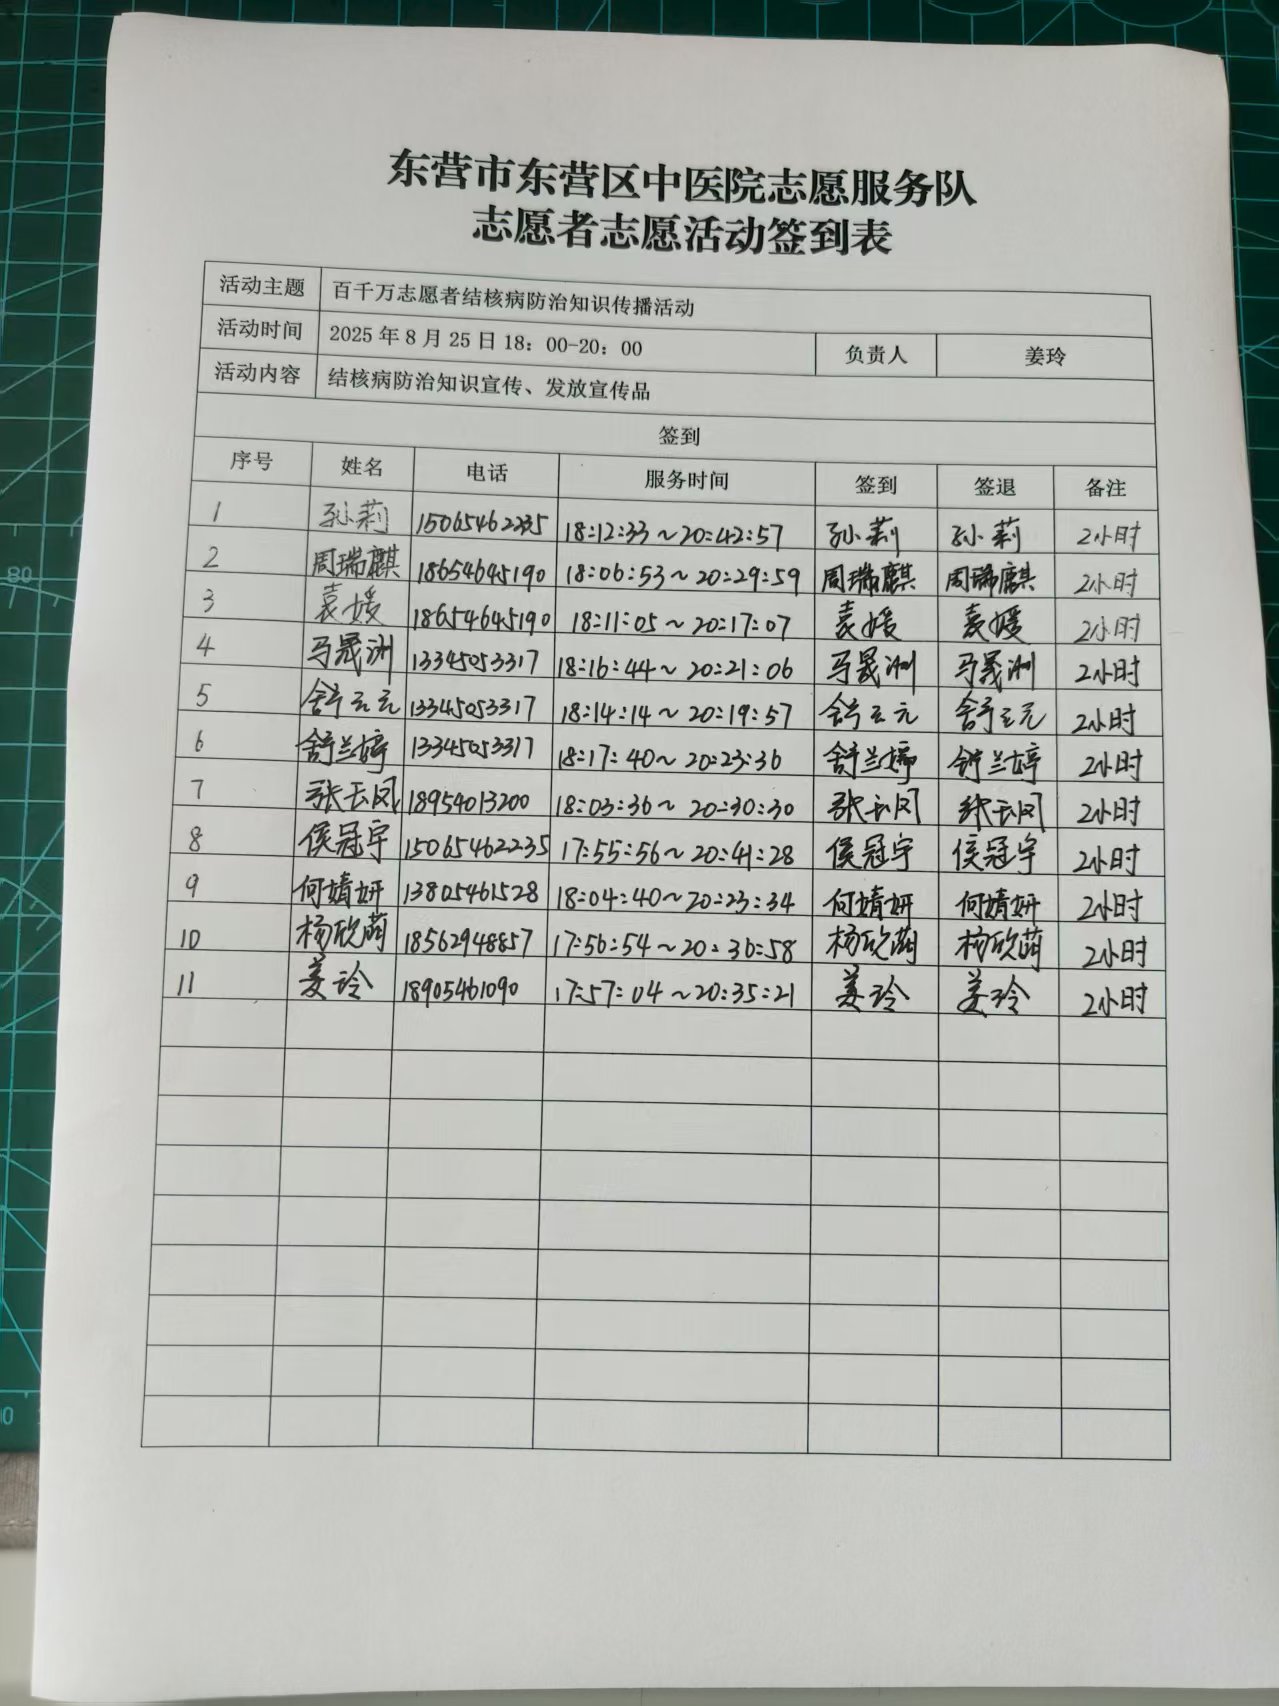 东营市东营区中医院志愿服务队
志愿者志愿活动签到表
活动主题 百千万志愿者结核病防治知识传播活动
活动时间 2025年8月25日18：00-20：00 负责人 姜玲
活动内容 结核病防治知识宣传、发放宣传品
签到
序号 姓名 电话 服务时间 签到 签退 备注
1 孙莉 15065462235 18:12:33~20:42:57 孙莉 孙莉 2小时
2 周瑞麒 18654645190 18:06:53~20:29:59 周瑞麒 周瑞麒 2小时
3 袁媛 18654645190 18:11:05~20:17:07 袁媛 袁媛 2小时
4 马晟洲 13345053317 18:16:44~20:21:06 马晟洲 马晟洲 2小时
5 舒云元 13345053317 18:14:14~20:19:57 舒云元 舒云元 2小时
6 舒兰婷 13345053317 18:17:40~20:23:36 舒兰婷 舒兰婷 2小时
7 张玉凤 18954013200 18:03:36~20:30:30 张玉凤 张玉凤 2小时
8 侯冠宇 15065462235 17:55:56~20:41:28 侯冠宇 侯冠宇 2小时
9 何婧妍 13805461528 18:04:40~20:23:34 何婧妍 何婧妍 2小时
10 杨欣萌 18562948857 17:56:54~20:36:58 杨欣萌 杨欣萌 2小时
11 姜玲 18905461090 17:57:04~20:35:21 姜玲 姜玲 2小时
80